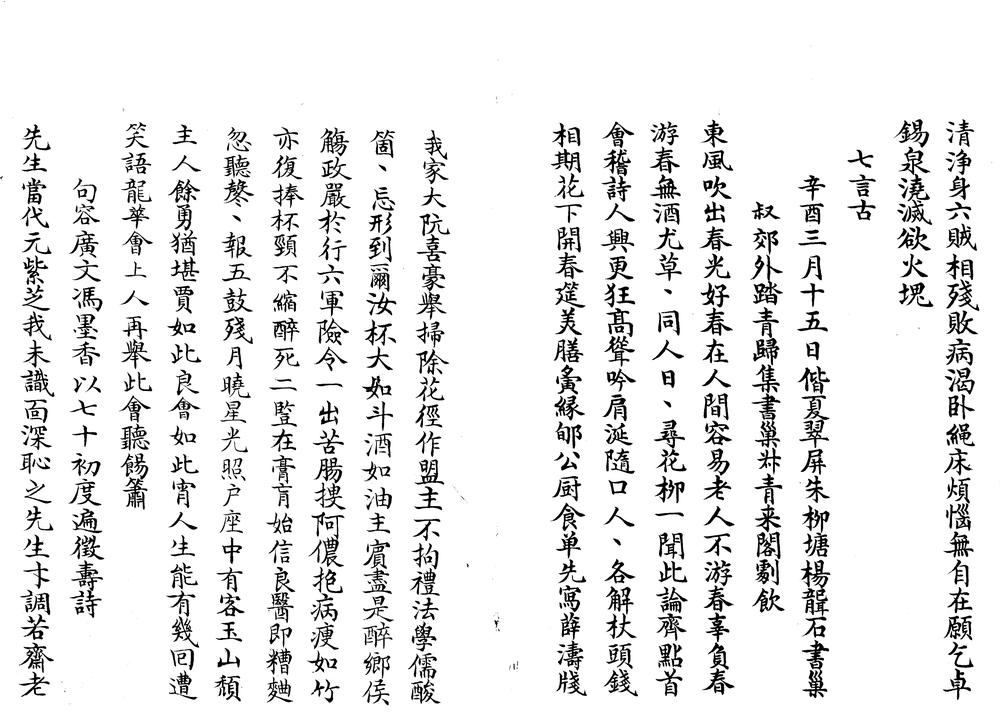 清浄身六賊相殘敗病渴卧繩床煩惱無自在願乞卓
錫泉澆滅欲火塊
七言古
辛酉三月十五日偕夏翠屏朱柳塘楊聾石書巢
叔郊外踏青歸集書巢叔青来閣劇飲
東風吹出春光好春在人間容易老人不游春辜負春
游春無酒尤草、同人日、尋花柳一聞此論齊點首
會稽詩人興更狂髙聳吟肩涎隨口人、各解杖頭錢
相期花下開春筵美膳夤緣郇公厨食单先寫薛濤牋
我家大阮喜豪舉掃除花徑作盟主不拘禮法學儒酸
箇、忘形到爾汝杯大如斗酒如油主賓盡是醉鄉侯
觴政嚴於行六軍險令一出苦腸摟阿儂抱病瘦如竹
亦復捧杯頸不縮醉死二豎在膏肓始信良醫即糟麯
忽聽鼕、報五鼓殘月曉星光照户座中有客玉山頹
主人餘勇猶堪賈如此良會如此宵人生能有幾回遭
笑語龍華會上人再舉此會聽餳簫
句容廣文馮墨香以七十初度遍徵壽詩
先生當代元紫芝我未識面深恥之先生卞調若齋老